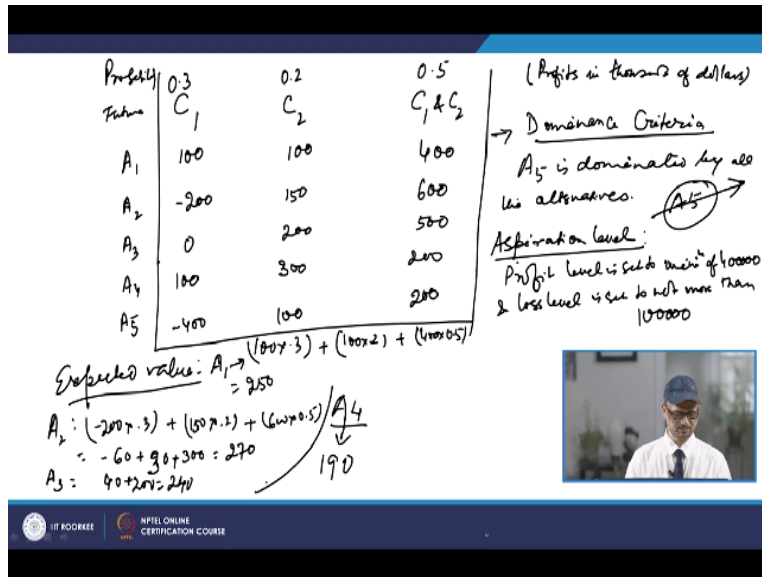 Probability 0.3 0.2 0.5 (Profits in thousands of dollars)
Future C1 C2 C1 & C2
A1 100 100 400
A2 -200 150 600
A3 0 200 500
A4 100 300 200
A5 -400 100 200
→ Dominance Criteria
A5 is dominated by all
the alternatives.
A5
Aspiration level:
Profit level is set to min^m of 400000
& loss level is set to not more than
100000
Expected value: A1 → (100×.3) + (100×.2) + (400×0.5)
= 250
A2: (-200×.3) + (150×.2) + (600×0.5)
= -60 + 30 + 300 = 270
A3 = 40+200=240
A4
↓
190
IIT ROORKEE
NPTEL ONLINE
CERTIFICATION COURSE